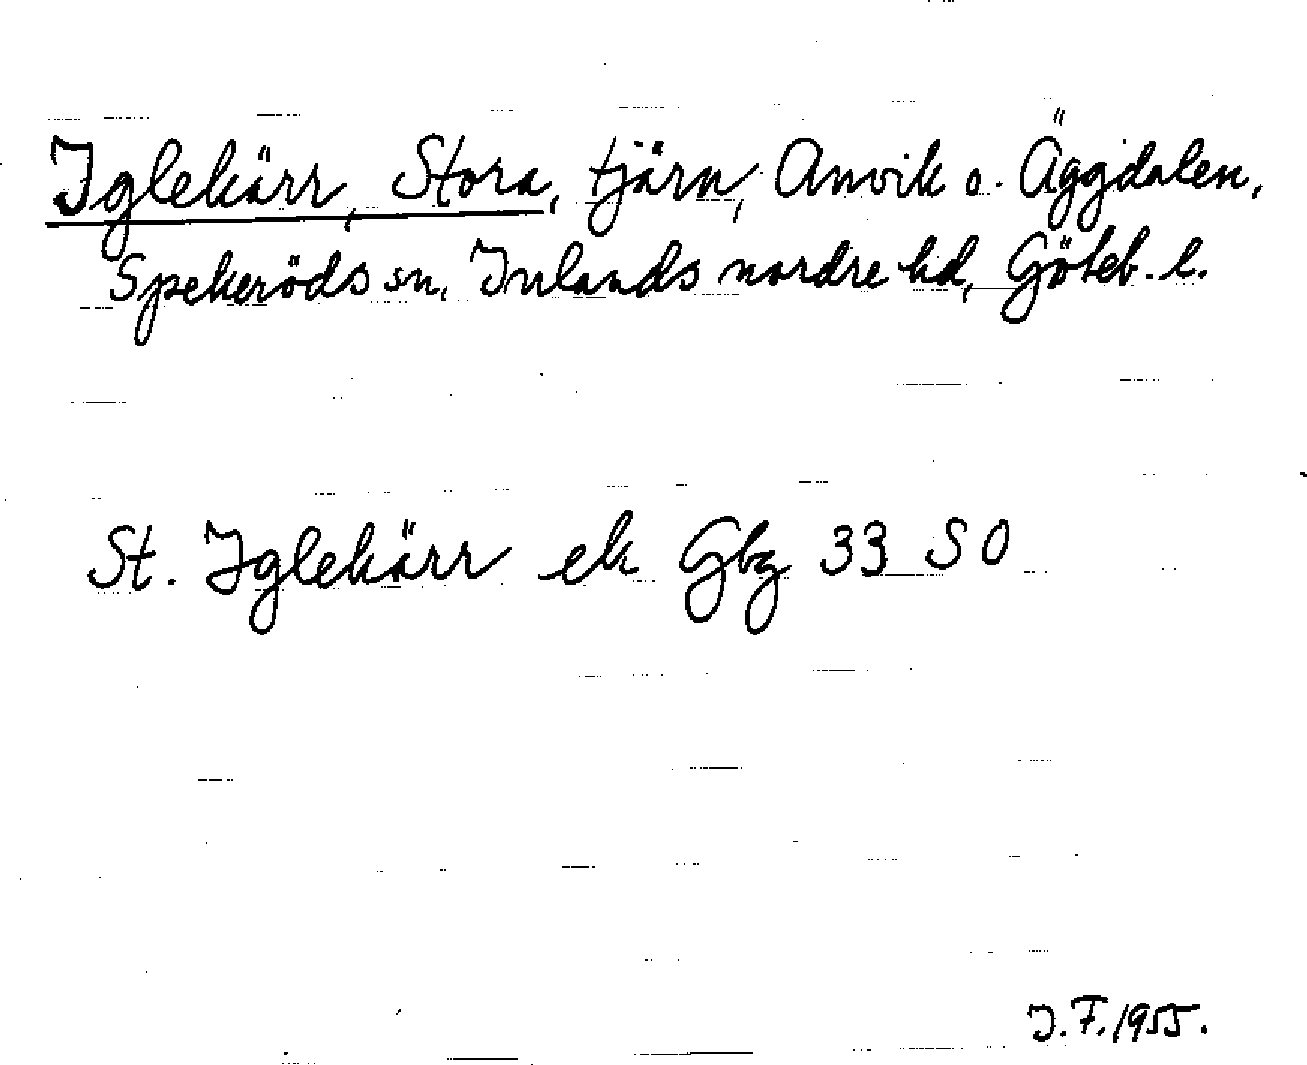 Iglekärr, Stora, tjärn, Anvik o. Äggdalen,
Spekeröds sn, Inlands nordre hd, Göteb. l.
St. Iglekärr ek Gbg 33 SO
J. F. 1955.